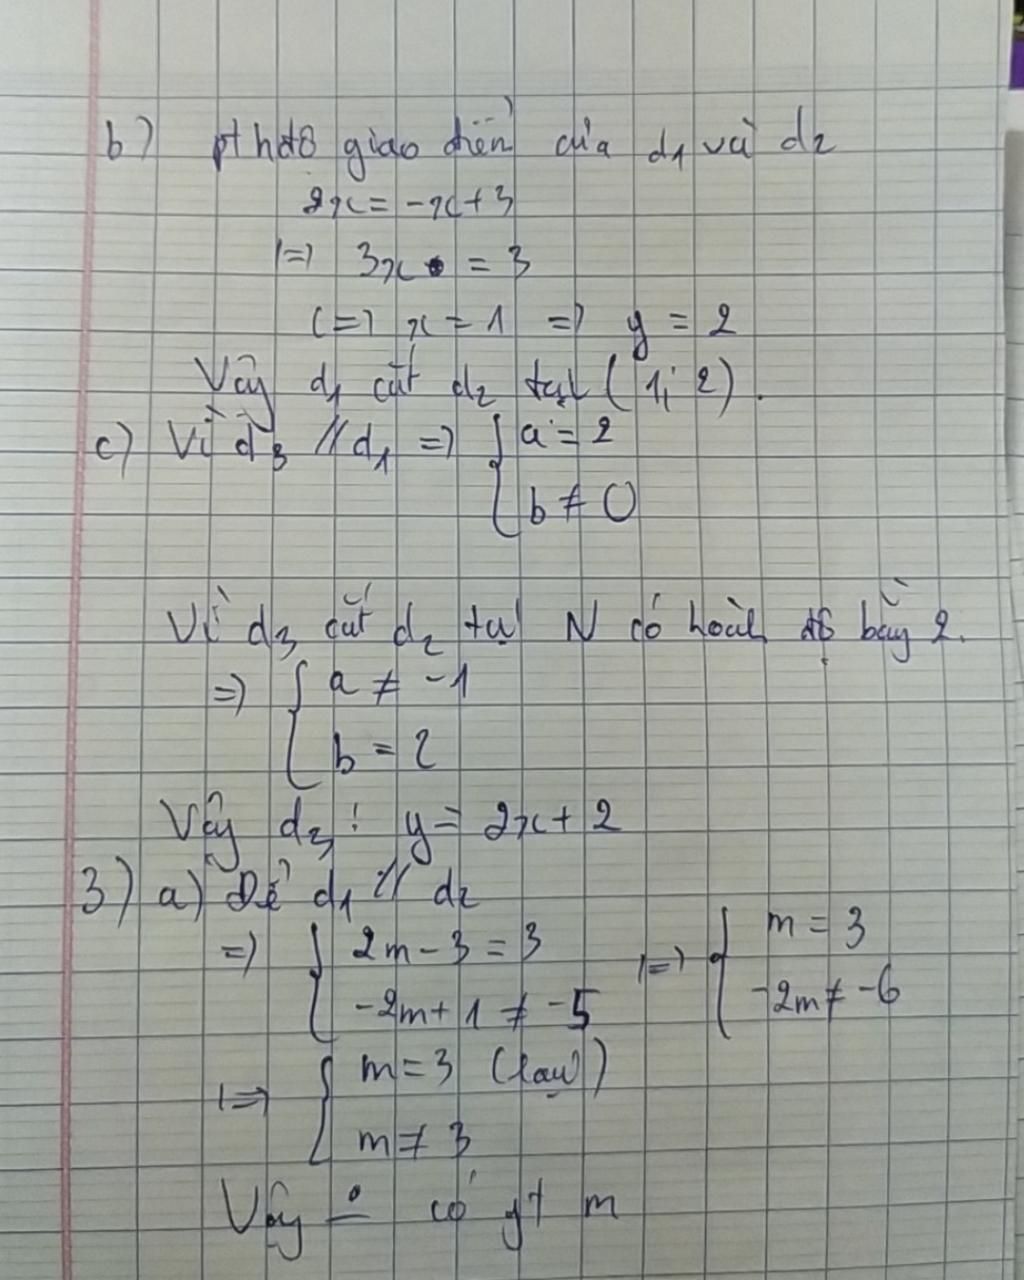 b) pt hđộ giao điểm của d₁ và d₂
2x = -x + 3
<=> 3x = 3
<=> x = 1 => y = 2
Vậy d₁ cắt d₂ tại (1; 2).
c) Vì d₃ // d₁ => { a = 2
b ≠ 0
Vì d₃ cắt d₂ tại N có hoành độ bằng 2.
=> { a ≠ -1
b = 2
Vậy d₃: y = 2x + 2
3) a) Để d₁ // d₂
=> { 2m - 3 = 3 <=> { m = 3
-2m + 1 ≠ -5 -2m ≠ -6
<=> { m = 3 (loại)
m ≠ 3
Vậy có gt m